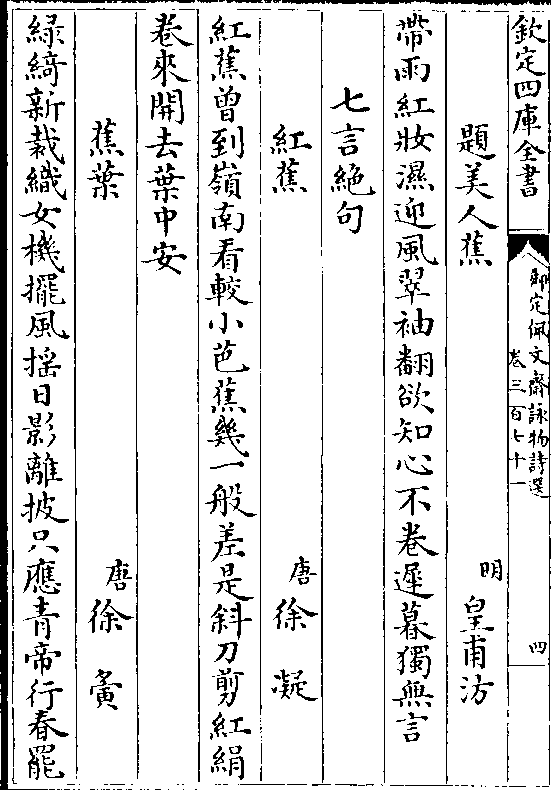 欽定四庫全書
御定佩文齋詠物詩選
卷三百七十一
四
題美人蕉
明
皇甫汸
帶雨紅妝濕迎風翠袖翻欲知心不卷遲暮獨無言
七言絕句
紅蕉
唐
徐凝
紅蕉曾到嶺南看較小芭蕉幾一般差是斜刀剪紅絹
卷來開去葉中安
蕉葉
唐
徐夤
綠綺新裁織女機擺風搖日影離披只應青帝行春罷